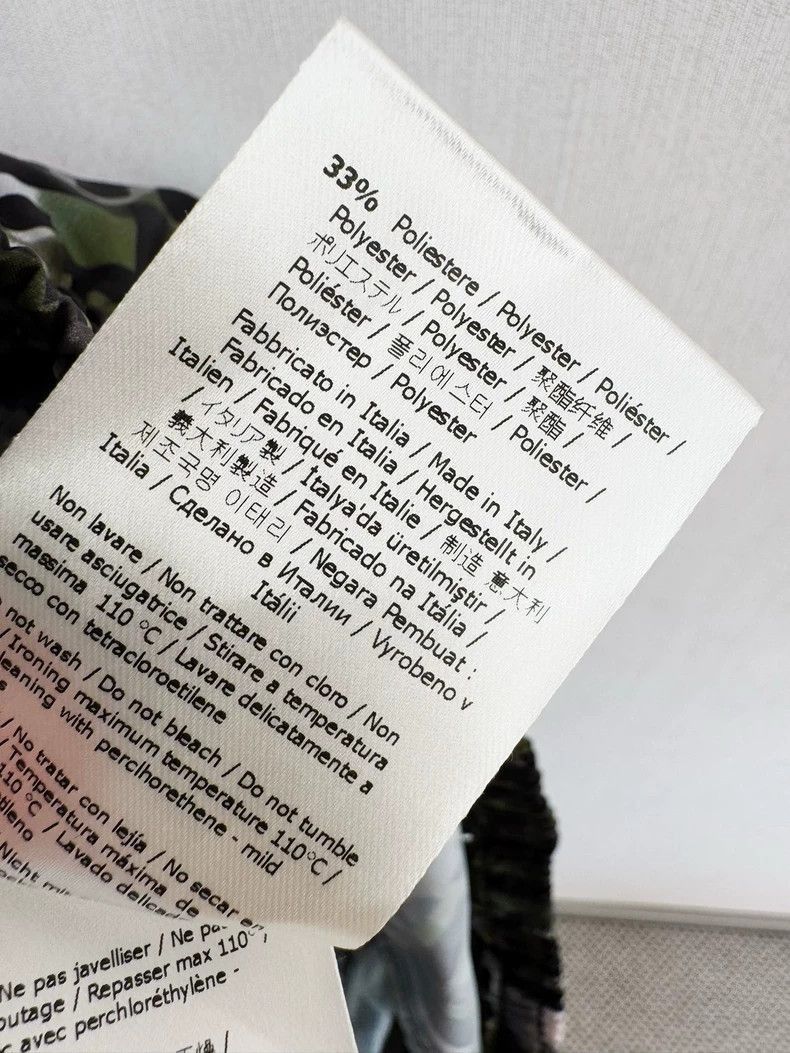 33% Poliestere / Polyester / Poliéster /
Polyester / Polyester / 聚酯纤维 /
ポリエステル / Polyester / 聚酯 /
Poliéster / 폴리에스터 / Poliester /
Полиэстер / Polyester
Fabbricato in Italia / Made in Italy /
Fabricado en Italia / Hergestellt in
Italien / Fabriqué en Italie / 制造 意大利
/ イタリア製 / Italya'da üretilmiştir /
義大利製造 / Fabricado na Itália /
제조국명 이태리 / Negara Pembuat :
Italia / Сделано в Италии / Vyrobeno v
Itálii
Non lavare / Non trattare con cloro / Non
usare asciugatrice / Stirare a temperatura
massima 110 °C / Lavare delicatamente a
secco con tetracloroetilene
not wash / Do not bleach / Do not tumble
/ Ironing maximum temperature 110°C /
cleaning with perclhorethene - mild
/ No tratar con lejía / No secar en
/ Temperatura máxima de
110 °C / Lavado
Nicht
Ne pas javelliser / Ne
/ Repasser max 110°
avec perchloréthylène -